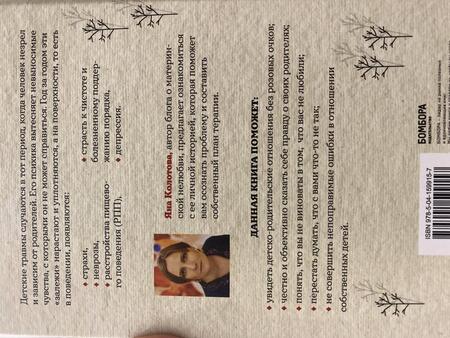 Детские травмы случаются в тот период, когда человек незрел
и зависим от родителей. Его психика вытесняет невыносимые
чувства, с которыми он не может справиться. Год за годом эти
«залежи» нарастают и уплотняются, а на поверхности, то есть
в поведении, появляются:
• страхи,
• неврозы,
• расстройства пищево-
го поведения (РПП),
• страсть к чистоте и
болезненному поддер-
жанию порядка,
• депрессия.
Яна Колотова, автор блога о материн-
ской нелюбви, предлагает ознакомиться
с ее личной историей, которая поможет
вам осознать проблему и составить
собственный план терапии.
ДАННАЯ КНИГА ПОМОЖЕТ:
• увидеть детско-родительские отношения без розовых очков;
• честно и объективно сказать себе правду о своих родителях;
• понять, что вы не виноваты в том, что вас не любили;
• перестать думать, что с вами что-то не так;
• не совершить непоправимые ошибки в отношении
собственных детей.
БОМБОРА
ISBN 978-5-04-159915-7